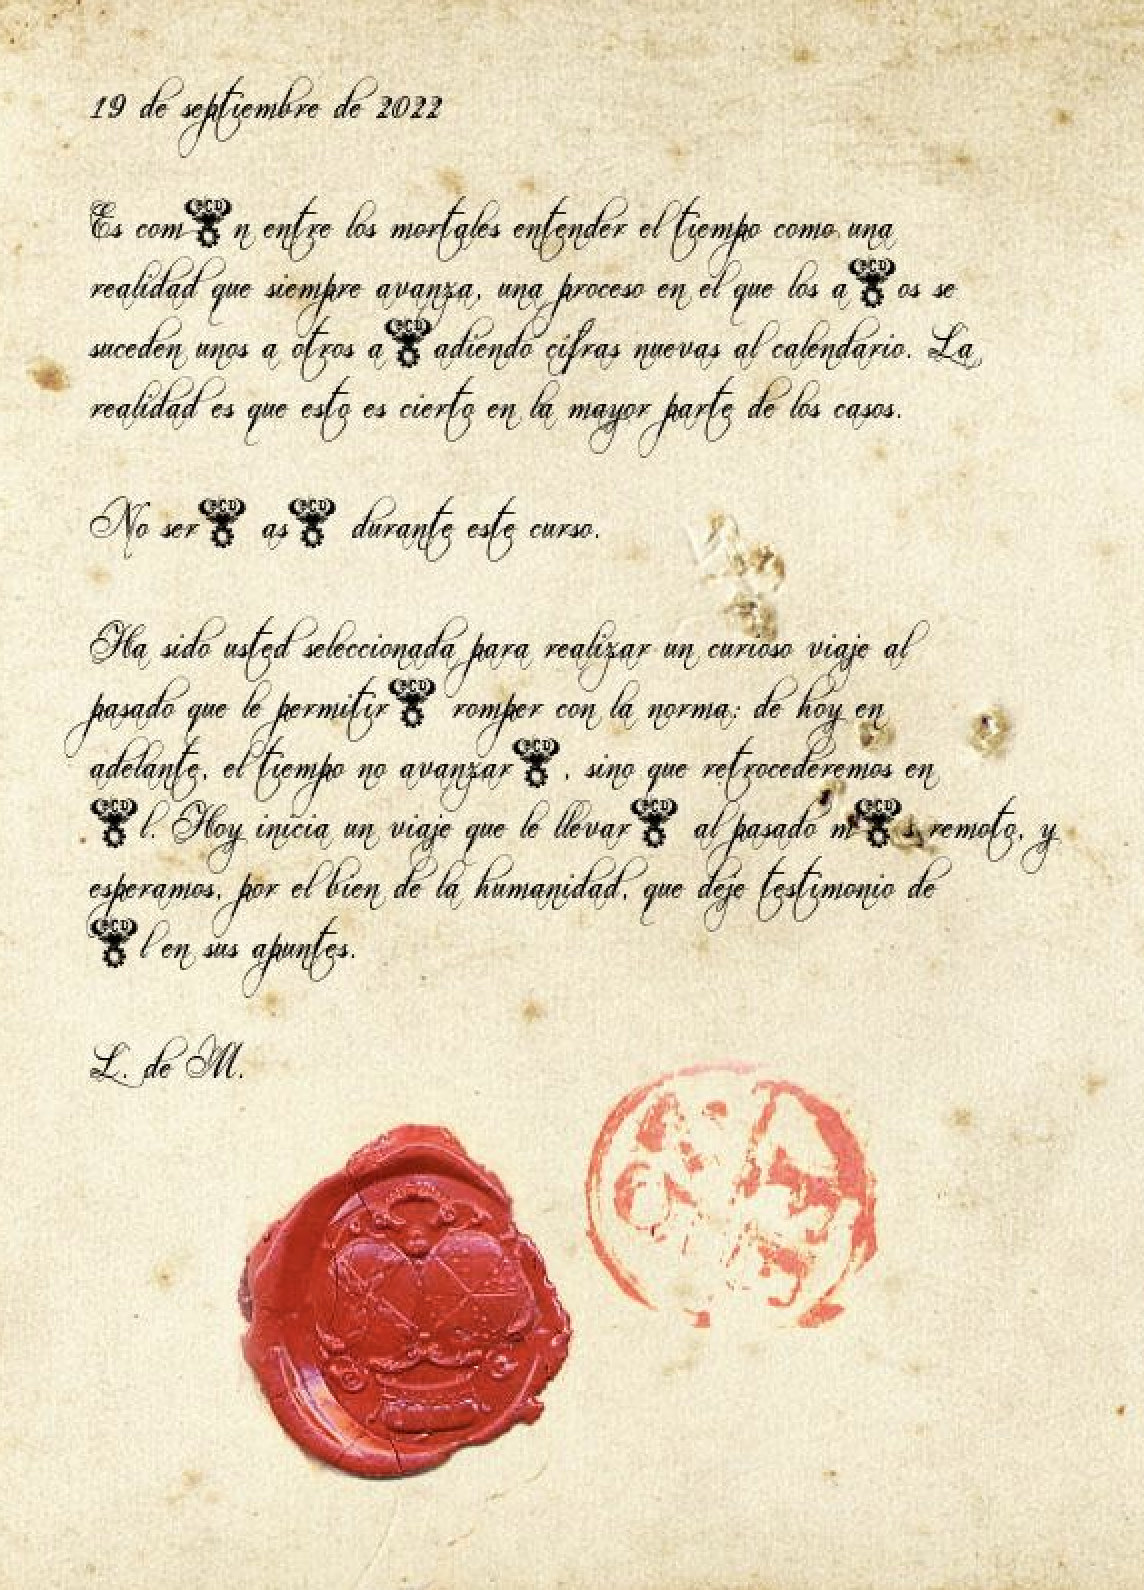 19 de septiembre de 2022
Es com�n entre los mortales entender el tiempo como una
realidad que siempre avanza, una proceso en el que los a�os se
suceden unos a otros a�adiendo cifras nuevas al calendario. La
realidad es que esto es cierto en la mayor parte de los casos.
No ser� as� durante este curso.
Ha sido usted seleccionada para realizar un curioso viaje al
pasado que le permitir� romper con la norma: de hoy en
adelante, el tiempo no avanzar�, sino que retrocederemos en
�l. Hoy inicia un viaje que le llevar� al pasado m�s remoto, y
esperamos, por el bien de la humanidad, que deje testimonio de
�l en sus apuntes.
L. de M.